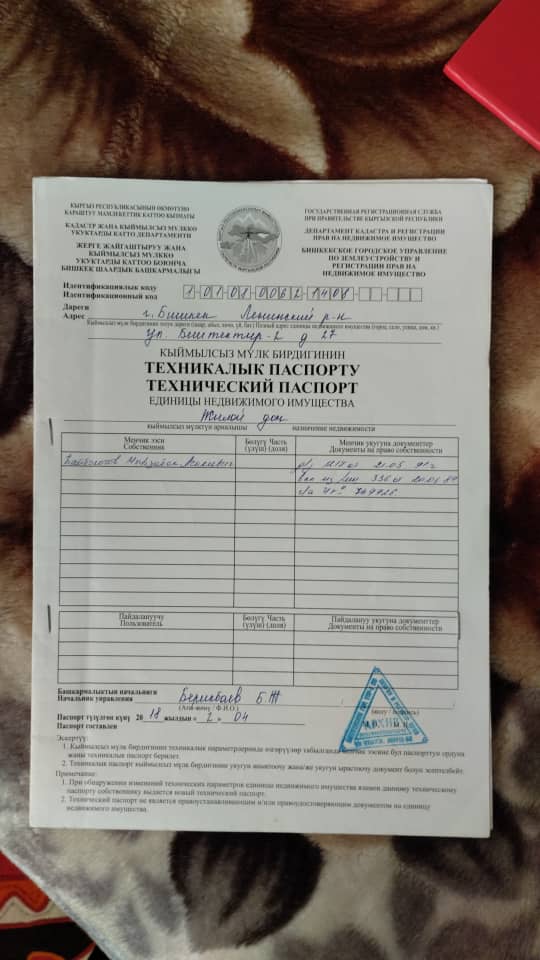 КЫРГЫЗ РЕСПУБЛИКАСЫНЫН ӨКМӨТҮНӨ
КАРАШТУУ МАМЛЕКЕТТИК КАТТОО КЫЗМАТЫ
КАДАСТР ЖАНА КЫЙМЫЛСЫЗ МҮЛККӨ
УКУКТАРДЫ КАТТОО ДЕПАРТАМЕНТИ
ЖЕРГЕ ЖАЙГАШТЫРУУ ЖАНА
КЫЙМЫЛСЫЗ МҮЛККӨ
УКУКТАРДЫ КАТТОО БОЮНЧА
БИШКЕК ШААРДЫК БАШКАРМАЛЫГЫ
ГОСУДАРСТВЕННАЯ РЕГИСТРАЦИОННАЯ СЛУЖБА
ПРИ ПРАВИТЕЛЬСТВЕ КЫРГЫЗСКОЙ РЕСПУБЛИКИ
ДЕПАРТАМЕНТ КАДАСТРА И РЕГИСТРАЦИИ
ПРАВ НА НЕДВИЖИМОЕ ИМУЩЕСТВО
БИШКЕКСКОЕ ГОРОДСКОЕ УПРАВЛЕНИЕ
ПО ЗЕМЛЕУСТРОЙСТВУ И
РЕГИСТРАЦИИ ПРАВ НА
НЕДВИЖИМОЕ ИМУЩЕСТВО
Идентификациялык коду
Идентификационный код 1 01 08 0062 1408
Дареги
Адрес г. Бишкек Ленинский р-н
ул. Бештектир-2 д 27
КЫЙМЫЛСЫЗ МҮЛК БИРДИГИНИН
ТЕХНИКАЛЫК ПАСПОРТУ
ТЕХНИЧЕСКИЙ ПАСПОРТ
ЕДИНИЦЫ НЕДВИЖИМОГО ИМУЩЕСТВА
Жилой дом
кыймылсыз мүлктүн арналышы назначение недвижимости
Менчик ээси
Собственник
Бөлүгү Часть
(үлүш) (доля)
Менчик укугуна документтер
Документы на право собственности
Пайдалануучу
Пользователь
Бөлүгү Часть
(үлүш) (доля)
Пайдалануу укугуна документтер
Документы на право собственности
Башкармалыктын начальниги
Начальник управления Б.Ж
Паспорт түзүлгөн күнү 20 18 жылдын "2" 04
Паспорт составлен
Эскертүү:
1. Кыймылсыз мүлк бирдигинин техникалык параметрлеринде өзгөрүүлөр табылганда менчик ээсине бул паспорттун ордуна
жаңы техникалык паспорт берилет.
Примечание:
1. При обнаружении изменений технических параметров единицы недвижимого имущества взамен данному техническому
паспорту собственнику выдается новый технический паспорт.
2. Технический паспорт не является правоустанавливающим и/или правоудостоверяющим документом на единицу
недвижимого имущества.